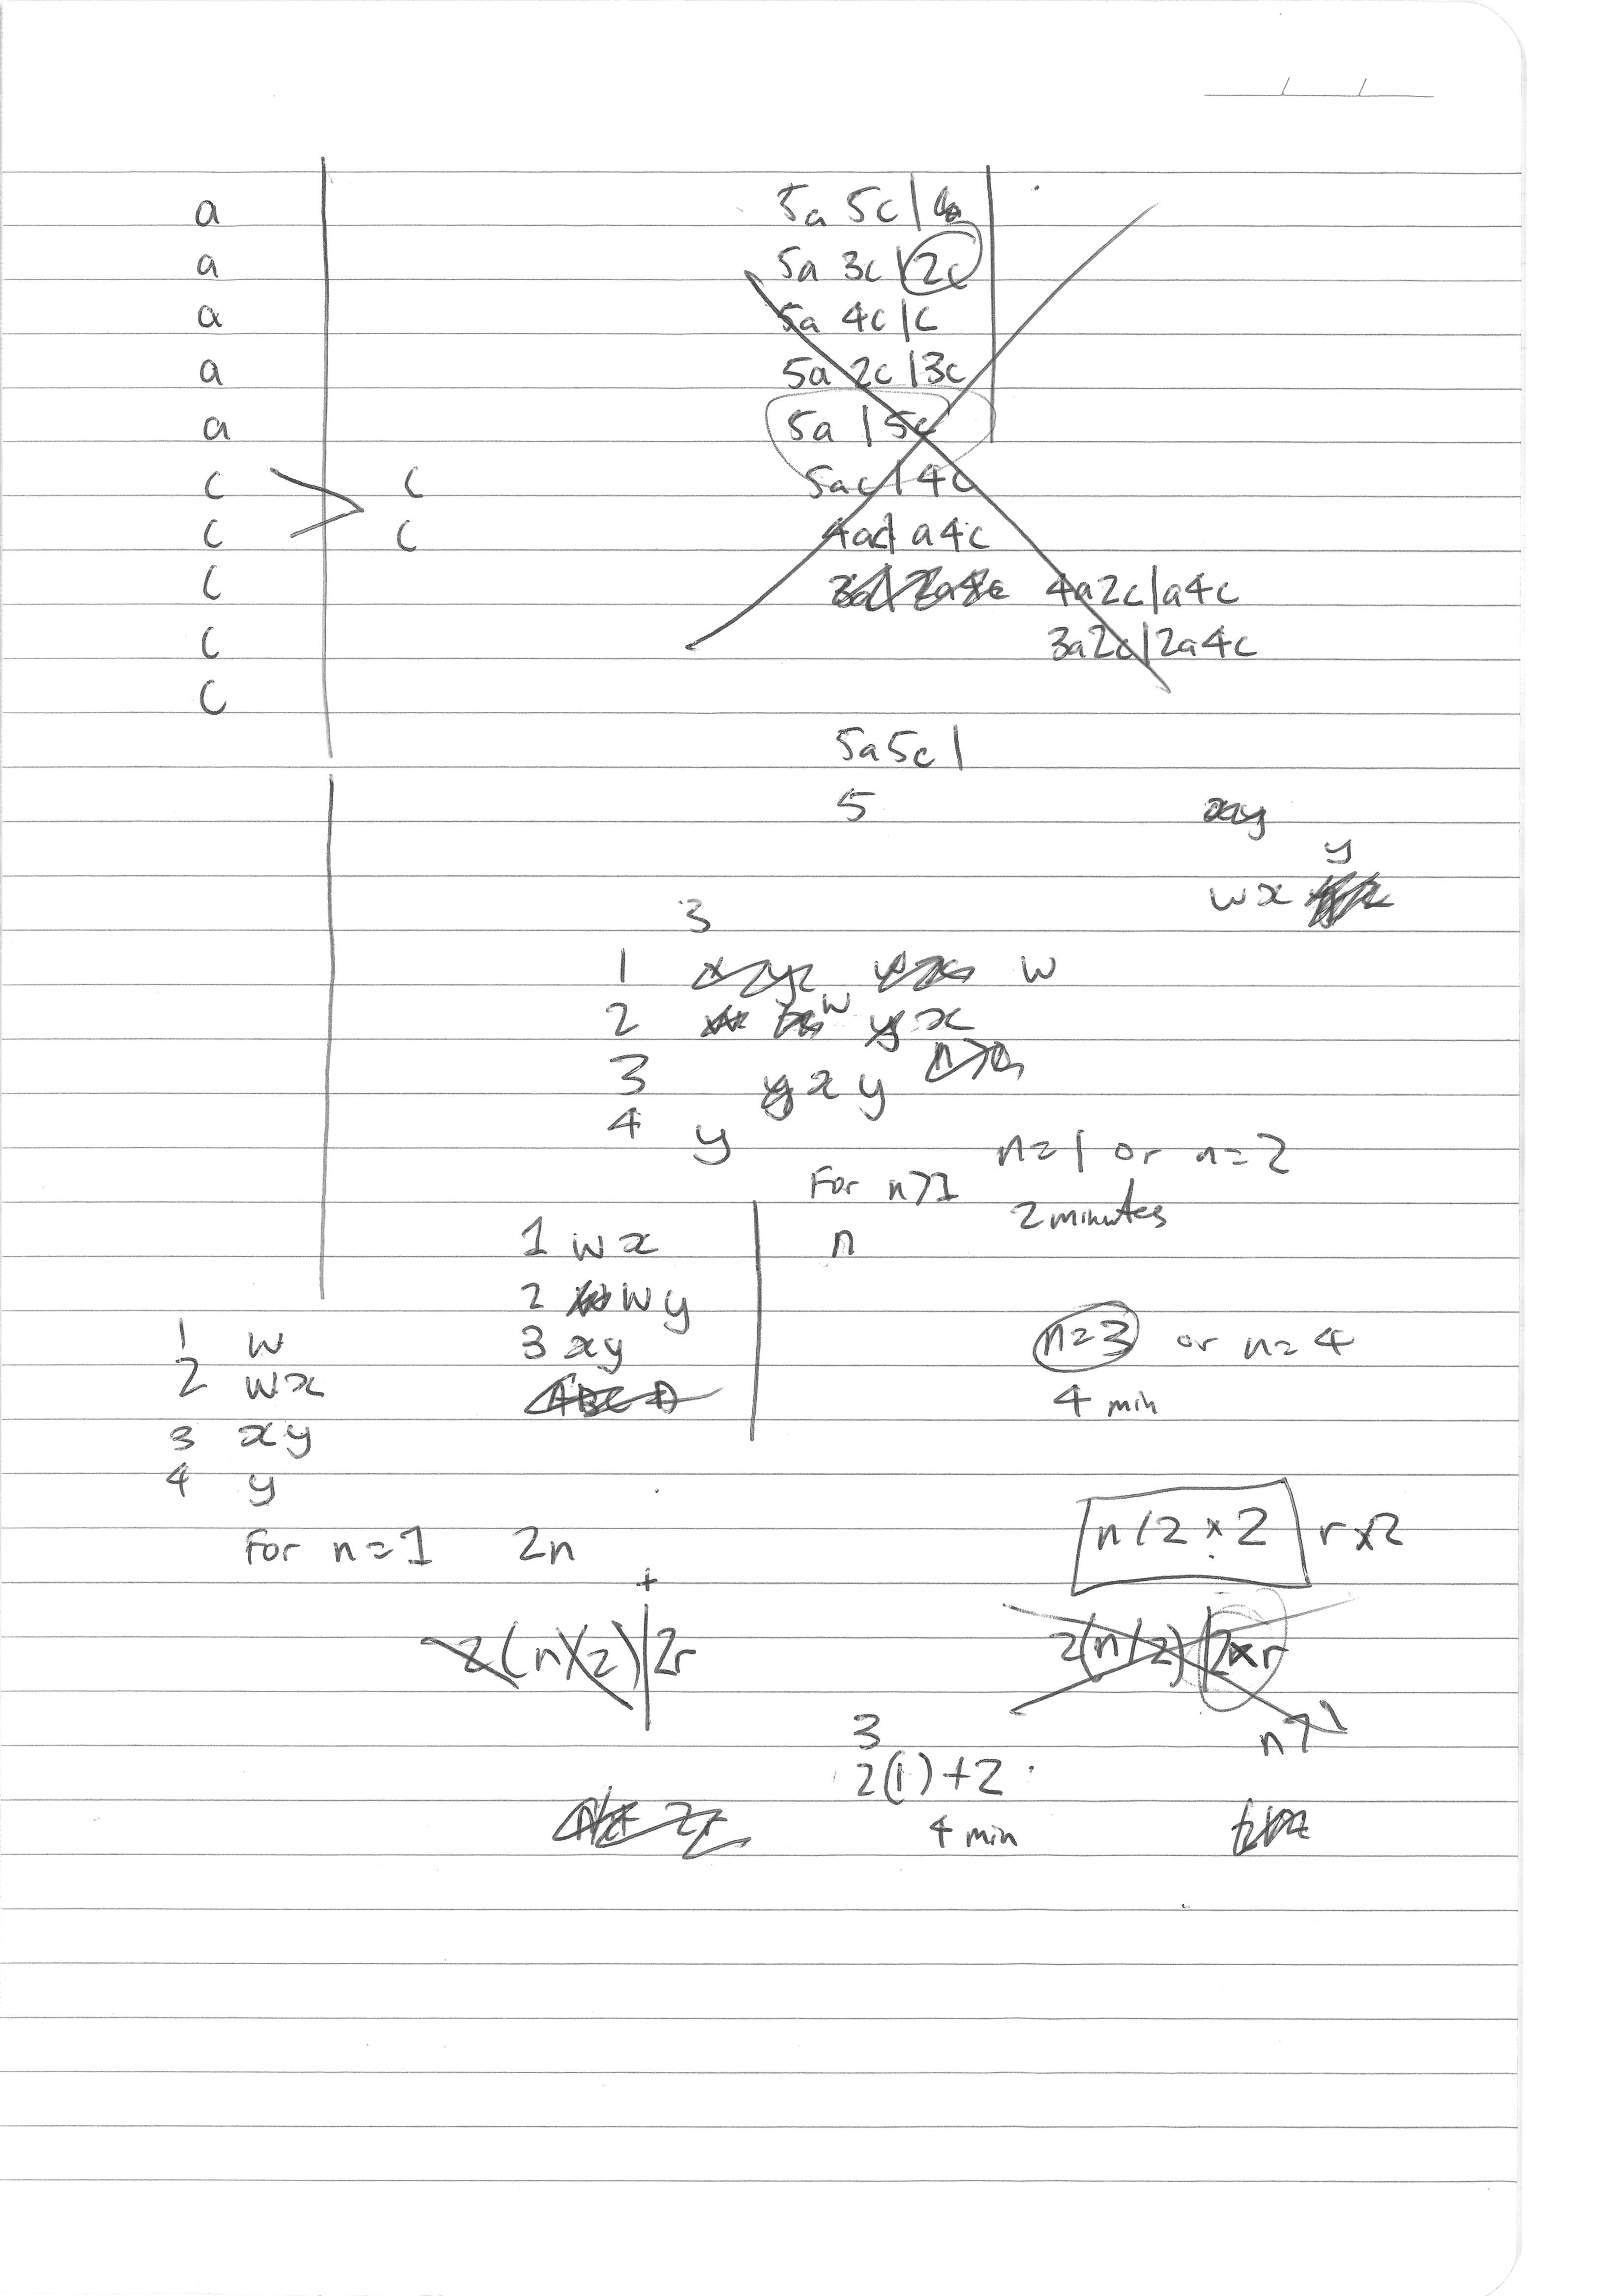 a
a
a
a
a
c
c
c
c
c
c
c
5a 5c |
5a 3c | 2c
5a 4c | c
5a 2c | 3c
5a | 5c
5ac | 4c
4ac | a4c
4a2c | a4c
3a2c | 2a4c
5a5c |
5
xy
y
wx
3
1 w
2 w y x
3 y x y
4 y
n=1 or n=2
For n>1
2 minutes
1 wx
2 wy
3 xy
n
n=3 or n=4
4 min
1 w
2 wx
3 xy
4 y
For n=1 2n
n/2 × 2 r×2
+
2(n/2) | 2r
2(n/2) | 2×r
n>1
3
2(1)+2
4 min